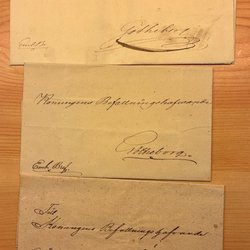 Götheborg
Konungens Befallningshafvande
Götheborg.
Till
Konungens Befallningshafvande